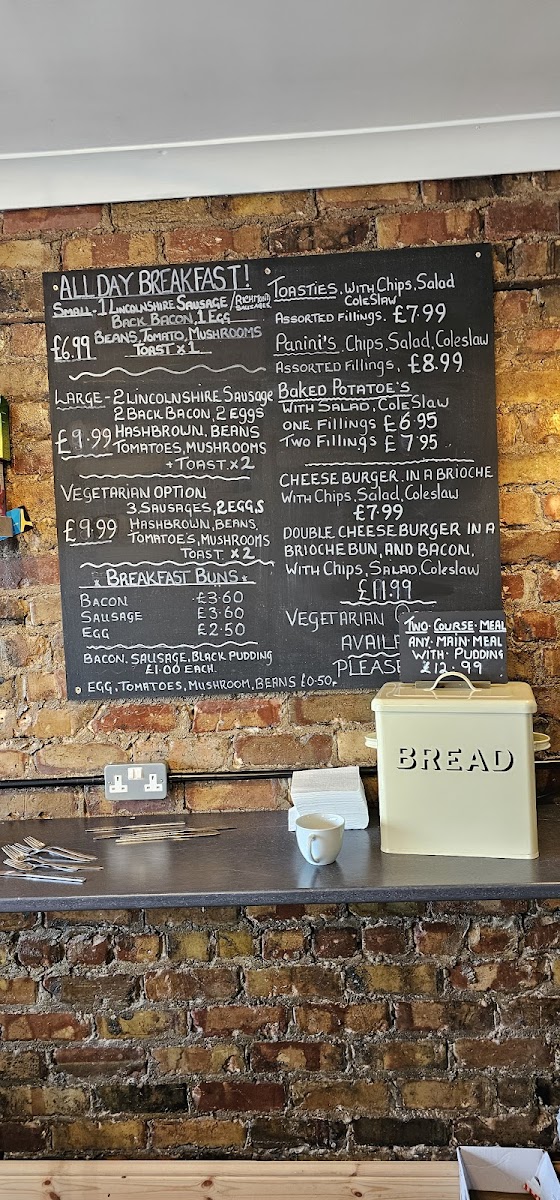 ALL DAY BREAKFAST!
SMALL-1 LINCOLNSHIRE SAUSAGE/RICHMOND SAUSAGES
BACK BACON, 1 EGG
£6.99 BEANS, TOMATO, MUSHROOMS
TOAST x 1
LARGE-2 LINCOLNSHIRE SAUSAGE
2 BACK BACON, 2 EGGS
£9.99 HASHBROWN, BEANS
TOMATOES, MUSHROOMS
+ TOAST x 2
VEGETARIAN OPTION
3 SAUSAGES, 2 EGGS
£9.99 HASHBROWN, BEANS,
TOMATOE'S, MUSHROOMS
TOAST x 2
BREAKFAST BUNS
BACON £3.60
SAUSAGE £3.60
EGG £2.50
BACON, SAUSAGE, BLACK PUDDING
£1.00 EACH
EGG, TOMATOES, MUSHROOM, BEANS £0.50p
TOASTIES. WITH Chips, Salad
Coleslaw
ASSORTED FILLINGS. £7.99
PANINI'S. Chips, Salad, Coleslaw
ASSORTED FILLINGS. £8.99
BAKED POTATOE'S
WITH SALAD, ColeSlaw
ONE FillingS £6.95
TWO FillingS £7.95
CHEESEBURGER IN A BRIOCHE
WITH Chips, Salad, Coleslaw
£7.99
DOUBLE CHEESEBURGER IN A
BRIOCHE BUN, AND BACON,
WITH Chips, SALAD, Coleslaw
£11.99
VEGETARIAN
PLEASE
TWO-COURSE-MEAL
ANY-MAIN-MEAL
WITH-PUDDING
£12.99
BREAD